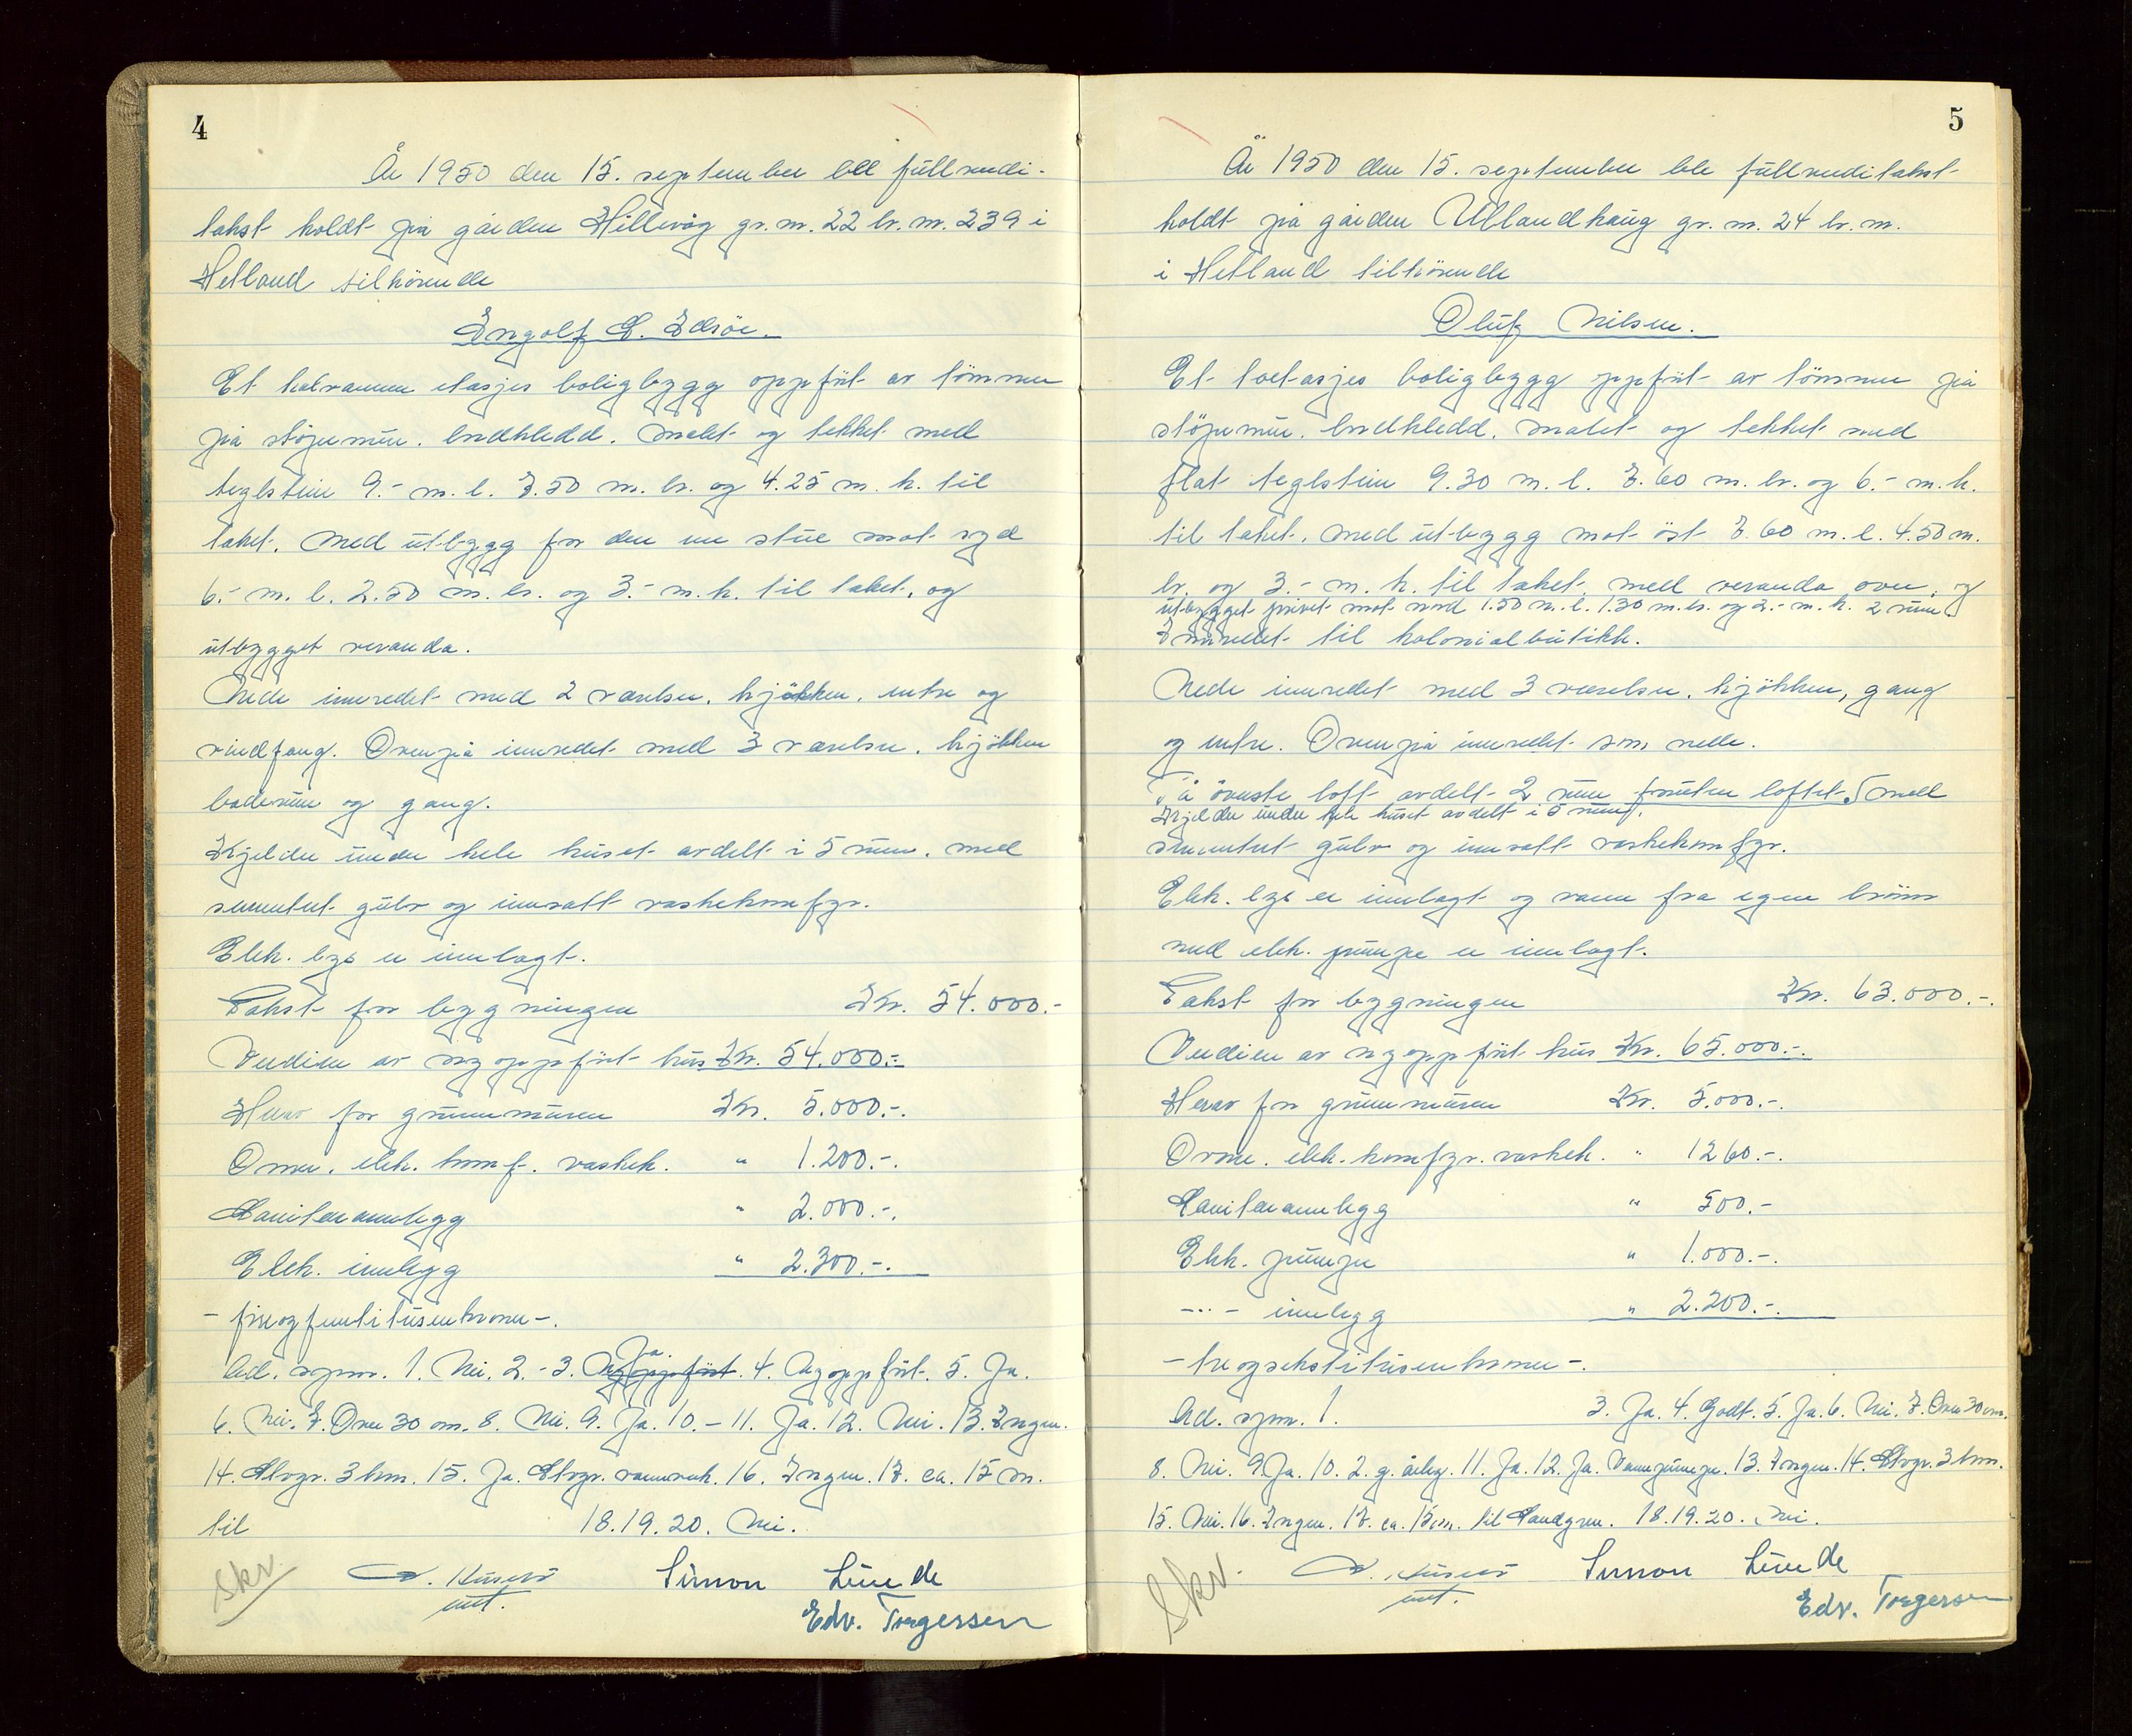 4
År 1950 den 15. september ble fullverdi-
takst holdt på gården Hillevåg gr. nr. 22 br. nr. 239 i
Hetland tilhörende
Ingolf E. Edsöe.
Et halvannen etasjes boligbygg oppfört av tömmer
på stöpemur. bordkledd. malet og tekket med
teglstein 9.- m. l. 7.50 m. br. og 4.25 m. h. til
taket. Med utbygg for den ene stue mot syd
6.- m. l. 2.50 m. br. og 3.- m. h. til taket, og
utbygget veranda.
Nede innredet med 2 værelser, kjökken, entre og
vindfang. Ovenpå innredet med 3 værelser, kjökken
baderum og gang.
Kjelder under hele huset avdelt i 5 rum, med
sementert gulv og innsatt vaskekomfyr.
Elek. lys er innlagt.
Takst for bygningen Kr. 54.000.-
Verdien av nyoppfört hus Kr. 54.000.-
Herav for grunnmuren Kr. 5.000.-.
Ovner. elek. komf. vaskek. " 1.200.-.
Sanitæranlegg " 2.000.-.
Elek. innlegg " 2.300.-.
- fireogfemtitusenkroner -.
Ad. spm. 1. Nei. 2. - 3. Nyoppfört Ja. 4. Nyoppfört. 5. Ja.
6. Nei. 7. Over 30 cm. 8. Nei. 9. Ja. 10. - 11. Ja. 12. Nei. 13. Ingen.
14. Stvgr. 3 km. 15. Ja. Stvgr. vannverk. 16. Ingen. 17. ca. 15 m.
til 18. 19. 20. Nei.
Skr. Simon Lunde
Edv. Torgersen
5
År 1950 den 15. september ble fullverditakst
holdt på gården Ullandhaug gr. nr. 24 br. nr.
i Hetland tilhörende
Oluf Nilsen.
Et toetasjes boligbygg oppfört av tömmer på
stöpemur. bordkledd. malet og tekket med
flat teglstein 9.30 m. l. 7.60 m. br. og 6.- m. h.
til taket. Med utbygg mot öst 7.60 m. l. 4.50 m.
br. og 3.- m. h. til taket, med veranda over, og
utbygget privet mot nord 1.50 m. l. 1.30 m. br. og 2.- m. h. 2 rum.
Innredet til kolonialbutikk.
Nede innredet med 3 værelser, kjökken, gang
og entre. Ovenpå innredet som nede.
På överste loft avdelt 2 rum foruten loftet. med
Kjelder under hele huset avdelt i 5 rum,
sementert gulv og innsatt vaskekomfyr.
Elek. lys er innlagt og vann fra egen brönn
med elek. pumpe er innlagt.
Takst for bygningen Kr. 63.000.-.
Verdien av nyoppfört hus Kr. 65.000.-.
Herav for grunnmuren Kr. 5.000.-.
Ovner. elek. komfyr. vaskek. " 1260.-.
Sanitæranlegg " 500.-
Elek. pumpe " 1.000.-.
-"- innlegg " 2.200.-.
- treogsekstitusenkroner -.
Ad. spm. 1. 3. Ja. 4. Godt. 5. Ja. 6. Nei. 7. Over 30 cm.
8. Nei. 9. Ja. 10. 2. g. årleg. 11. Ja. 12. Ja. Vannpumpe. 13. Ingen. 14. Stvgr. 3 km.
15. Nei. 16. Ingen. 17. ca. 15 m. til Sandgren. 18. 19. 20. Nei.
Skr. Simon Lunde
Edv. Torgersen